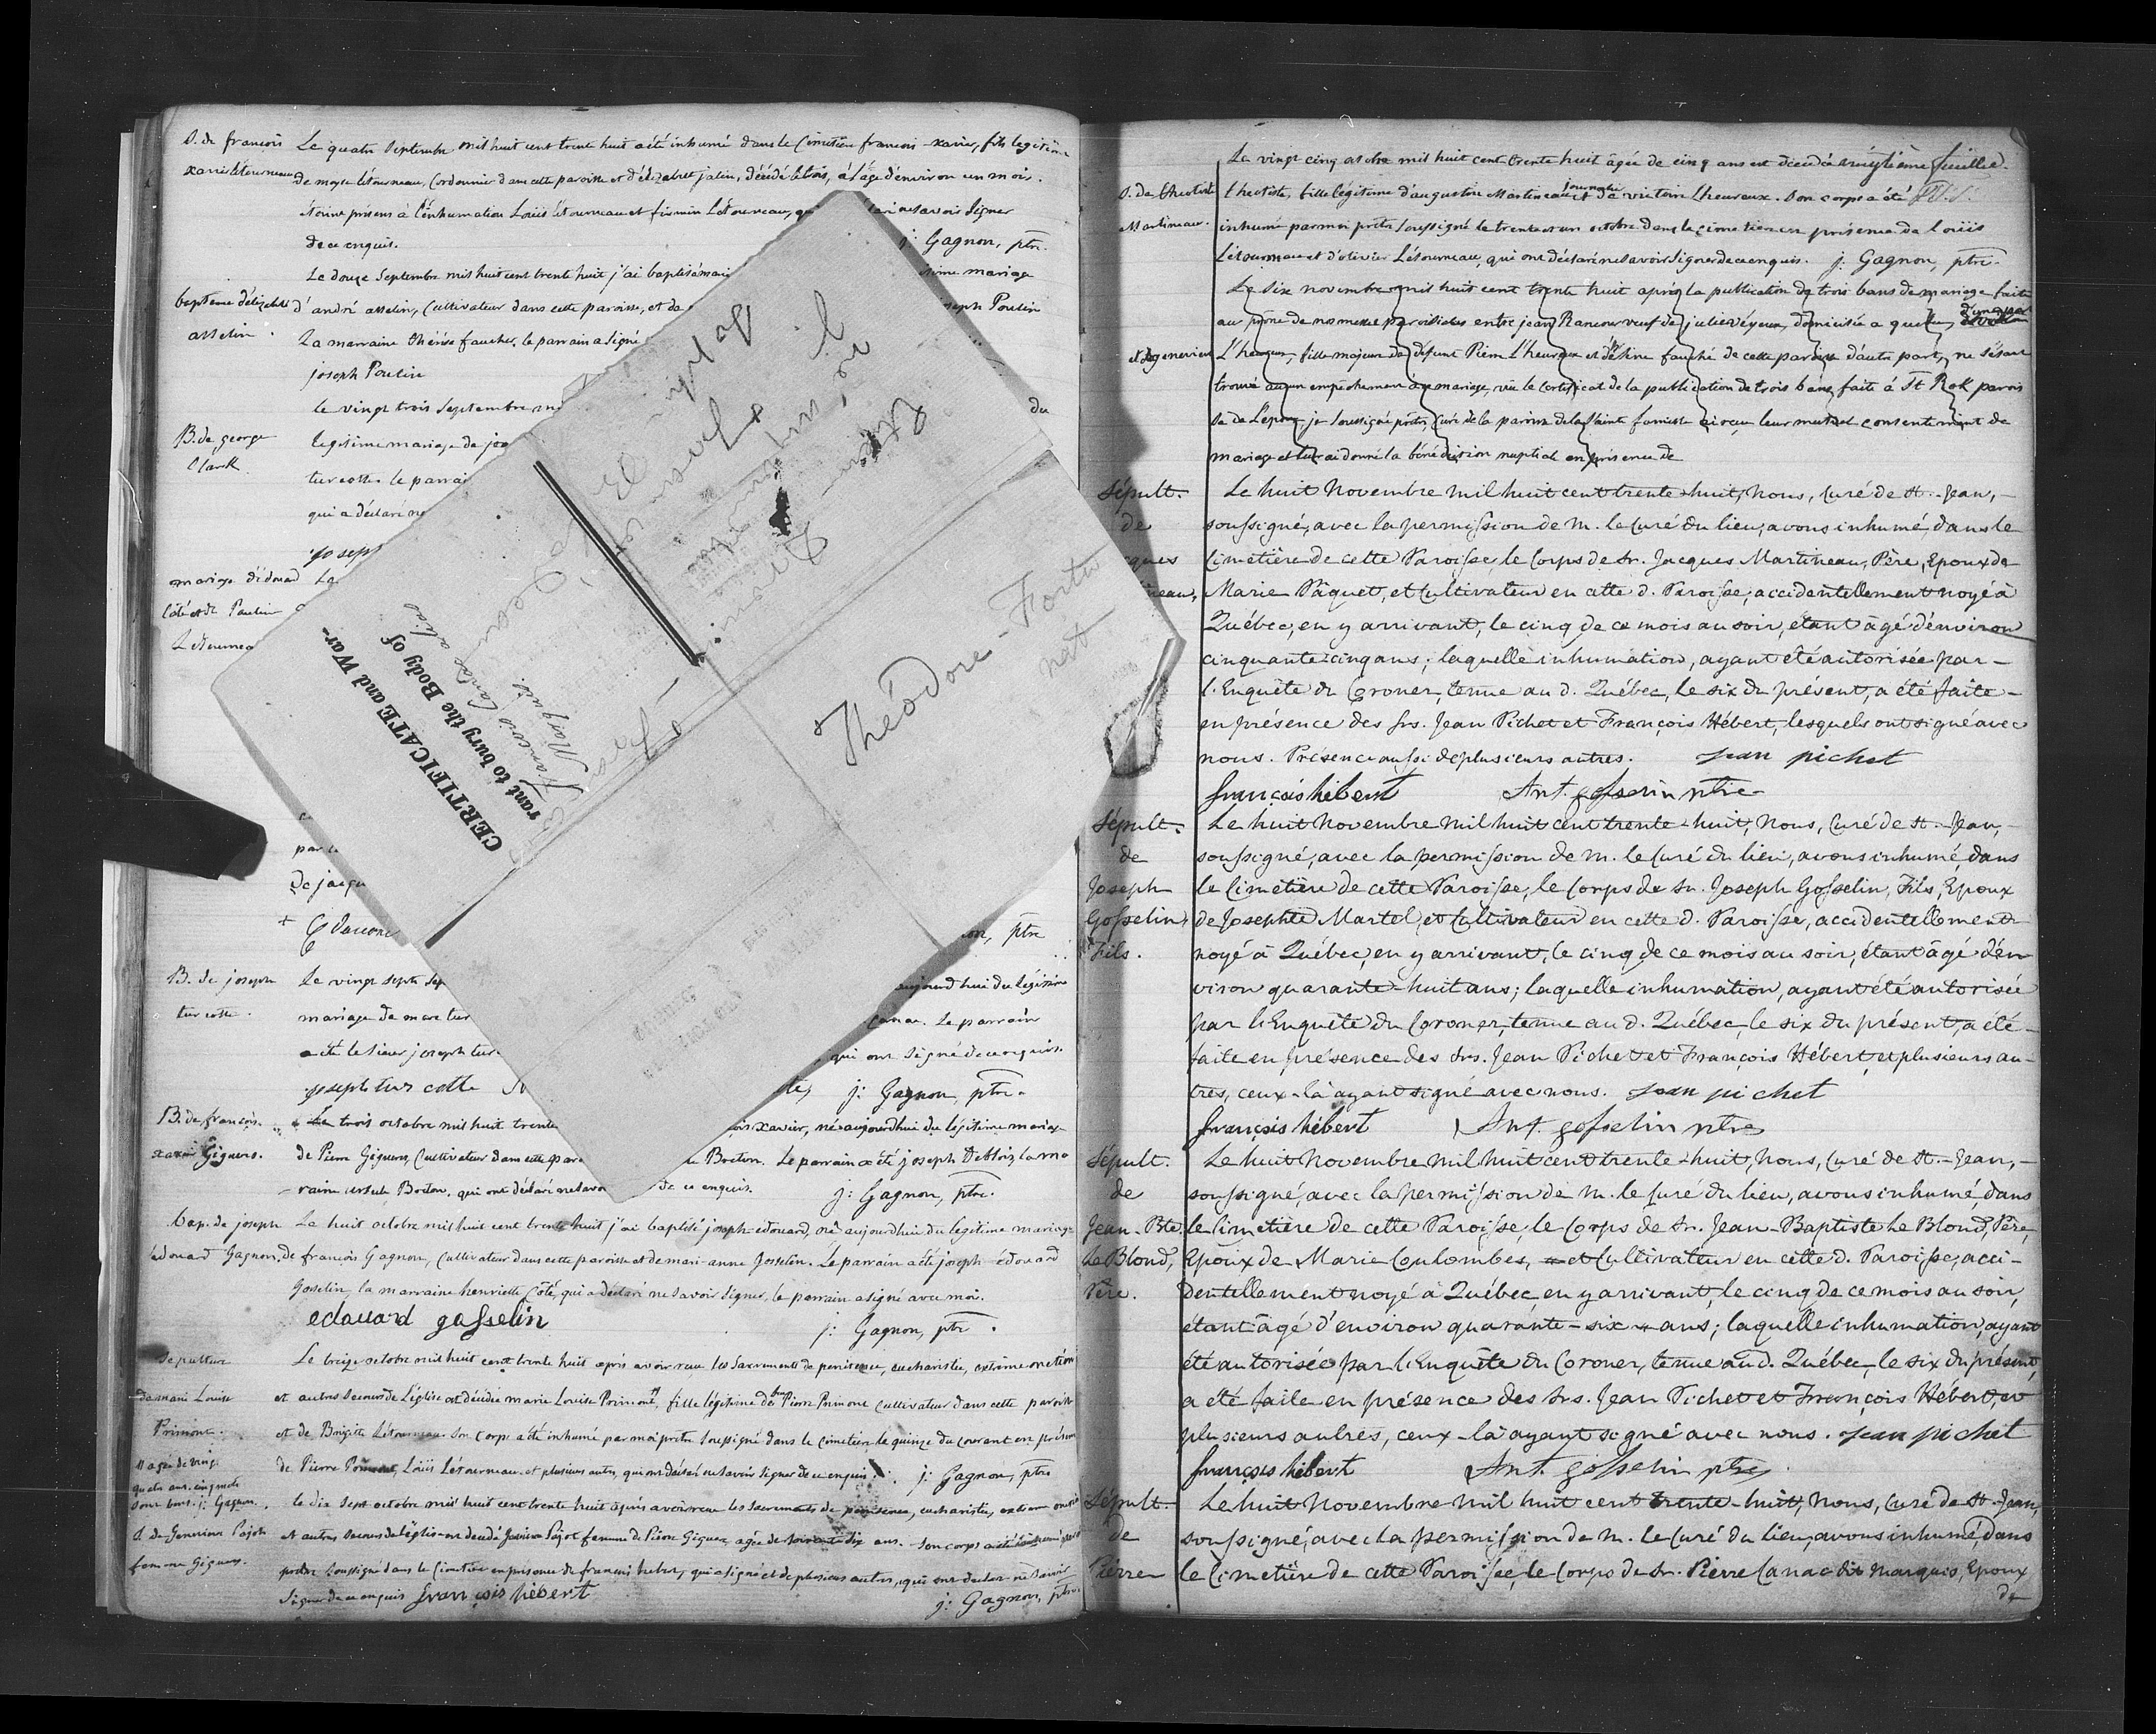 S. de francois
xavier létourneau
Le quatre Septembre mil huit cent trente huit a été inhumé dans le Cimetière francois-xavier, fils legitime
de moyse létourneau, Cordonnier dans cette paroisse et d'élizabeth jalin, décédé le trois, à l'âge d'environ un mois.
étoient présens à l'enhumation Louis létourneau et firmin Létourneau, savoir signer
de ce enquis. j: Gagnon, ptre.
Le douze Septembre mil huit cent trente huit j'ai baptisé mariage
bapteme d'élizabeth
asselin.
d'andré asselin, Cultivateur dans cette paroisse, et de joseph Poulin
La marraine thérèse faucher. le parrain a signé
joseph Poulin
le vingt trois Septembre du
B. de george
Clark
legitime mariage de
turcotte le parrain
qui a déclaré
joseph
mariage d'édouard
Côté et de Paulin
Létourneau
CERTIFICATE and War-
rant to bury the Body of
François Canac alias
Marquis.
Théodore Fortier
par
de jacques
ptre
B. de joseph
turcotte.
Le vingt sept aujourd'hui du légitime
mariage de marc Canac. Le parrain
a été le sieur joseph qui ont signé de ce enquis.
joseph tur cotte j: Gagnon, ptre.
B. de françois
xavier Giguere.
Le trois octobre mil huit trente xavier, né aujourd'hui du légitime mariage
de Pierre Giguere, Cultivateur dans cette Breton. Le parrain a été joseph Deblois, la ma
raine ursule Breton, qui ont déclaré ne savoir de ce enquis. j: Gagnon, ptre.
bap. de joseph
edouard Gagnon.
Le huit octobre mil huit cent trente huit j'ai baptisé joseph-edouard, né aujourd'hui du legitime mariage
de francois Gagnon, Cultivateur dans cette paroisse et de marie anne Gosselin. Le parrain a été joseph édouard
Gosselin, la marraine henriette Côté, qui a déclaré ne savoir signer, le parrain a signé avec moi.
edouard gosselin j: Gagnon, ptre.
Sepulture
de marie Louise
Primont.
Le treize octobre mil huit cent trente huit après avoir reçu les sacrements de penitence, eucharistie, extrême onction
et autres secours de l'église est décédée marie Louise Primont, fille légitime de Pierre Primont Cultivateur dans cette paroisse
et de Brigitte Létourneau. Son corps a été inhumé par moi pretre soussigné dans le Cimetiere le quinze du courant en présence
de Pierre Primont, Louis Létourneau et plusieurs autres, qui ont déclaré ne savoir signer de ce enquis. j: Gagnon, ptre
agée de vingt
S. de Genevieve Pajot
femme Giguere.
le dix sept octobre mil huit cent trente huit après avoir reçu les sacrements de penitence, eucharistie, extreme onction
et autres secours de l'église est décédée Genevieve Pajot femme de Pierre Giguere, agée de soixante dix ans. Son corps a été inhumé
pretre soussigné dans le Cimetiere en présence de francois hebert, qui a signé et de plusieurs autres, qui ont declaré ne savoir
signer de ce enquis françois hébert j: Gagnon, ptre
Le vingt cinq octobre mil huit cent trente huit âgée de cinq ans est décédée vingtième feuillet.
S. de theotiste
Martineau.
theotiste, fille légitime d'augustin Martineau journalier et de victoire L'heureux. Son corps a été
inhumé par moi prêtre soussigné le trente et un octobre dans le cimetiere en présence de Louis
Létourneau et d'olivier Létourneau, qui ont déclaré ne savoir signer de ce enquis. j: Gagnon, ptre.
Le six novembre mil huit cent trente huit après la publication de trois bans de mariage faite
au prône de nos messes paroissiales entre jean Rancour veuf de julie véyeux, domicilié a québec, d'une part
et de genevieve L'heureux, fille majeure de défunt Pierre L'heureux et de fauché de cette paroisse d'autre part, ne s'étant
trouvé aucun empêchement à ce mariage, vu le certificat de la publication de trois bans faite à St Rok parois
se de L'epoux, je soussigné prêtre, Curé de la paroisse de la Sainte famille ai reçu leur mutuel consentement de
mariage et leur ai donné la bénédiction nuptiale en présence de
Sépult.
de
Le huit Novembre mil huit cent trente-huit, Nous, Curé de St.-Jean,-
soussigné, avec la permission de M. le Curé du lieu, avons inhumé, dans le
Cimetière de cette Paroisse, le Corps de Sr. Jacques Martineau, Père, Epoux de
Marie Pâquet, et Cultivateur en cette d. Paroisse, accidentellement noyé à
Québec, en y arrivant, le cinq de ce mois au soir, étant âgé d'environ
cinquante-cinq ans; laquelle inhumation, ayant été autorisée par-
l'Enquête du Coroner, tenue au d. Québec, le six du présent, a été faite-
en présence des Srs. Jean Pichet et François Hébert, lesquels ont signé avec
nous. Présence aussi de plusieurs autres. Jean pichet
françois hébert Ant. gosselin ptre
Sépult.
de
Joseph
Gosselin,
Fils.
Le huit Novembre mil huit cent trente-huit, Nous, Curé de St.-Jean,-
soussigné, avec la permission de M. le Curé du lieu, avons inhumé dans
le Cimetière de cette Paroisse, le Corps de Sr. Joseph Gosselin, Fils, Epoux
de Josephte Martel, et Cultivateur en cette d. Paroisse, accidentellement
noyé à Québec, en y arrivant, le cinq de ce mois au soir, étant âgé d'en-
viron quarante-huit ans; laquelle inhumation, ayant été autorisée
par l'Enquête du Coroner, tenue au d. Québec, le six du présent, a été-
faite en présence des Srs. Jean Pichet et François Hébert et plusieurs au-
tres, ceux-là ayant signé avec nous. Jean pichet
françois hébert Ant. gosselin ptre
Sépult.
de
Jean-Bte.
Le Blond,
Père.
Le huit Novembre mil huit cent trente-huit, Nous, Curé de St.-Jean,-
soussigné, avec la permission de M. le Curé du lieu, avons inhumé, dans
le Cimetière de cette Paroisse, le Corps de Sr. Jean-Baptiste Le Blond, Père,
Epoux de Marie Coulombes, et Cultivateur en cette d. Paroisse, acci-
dentellement noyé à Québec, en y arrivant, le cinq de ce mois au soir,
étant âgé d'environ quarante-six ans; laquelle inhumation, ayant
été autorisée par l'Enquête du Coroner, tenue au d. Québec, le six du présent,
a été faite en présence des Srs. Jean Pichet et François Hébert, et
plusieurs autres, ceux-là ayant signé avec nous. Jean pichet
françois hébert Ant. gosselin ptre
Sépult.
de
Pierre
Le huit Novembre mil huit cent trente-huit, Nous, Curé de St.-Jean,
soussigné, avec la permission de M. le Curé du lieu, avons inhumé, dans
le Cimetière de cette Paroisse, le Corps de Sr. Pierre Canac dit Marquis, Epoux
de